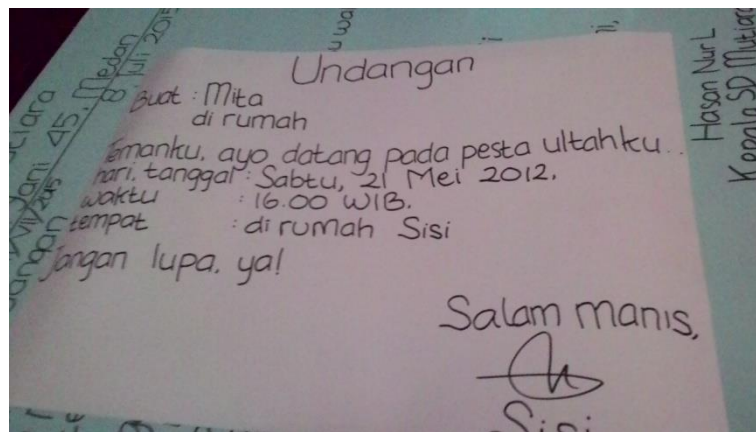 Undangan
Buat : Mita
di rumah
Temanku, ayo datang pada pesta ultahku..
hari, tanggal : Sabtu, 21 Mei 2012.
waktu : 16.00 WIB.
tempat : di rumah Sisi
Jangan lupa, ya!
Salam manis,
Sisi
Hasan Nur L
Kepala SD Mutiara
45, Medan
8 Juli 2015